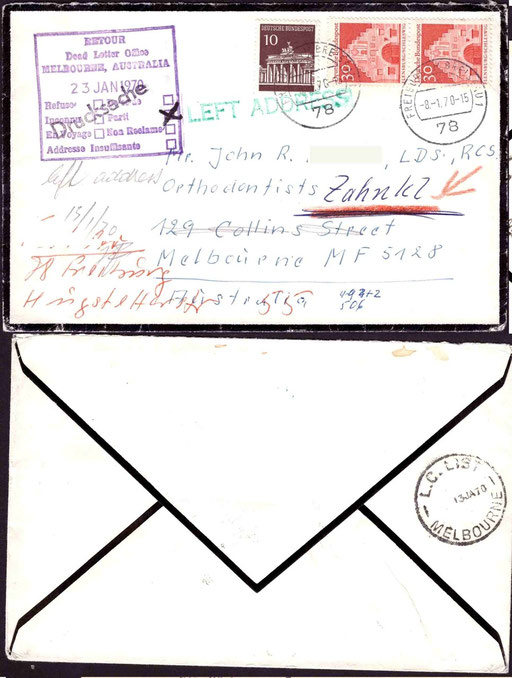 RETOUR
Dead Letter Office
MELBOURNE, AUSTRALIA
23 JAN 1970
Refuse
Inconnu Parti
En Voyage Non Reclame
Addresse Insuffisante
Drucksache
DEUTSCHE BUNDESPOST
10
30
30
78
FREIBURG
-8.-1.70-15
78
LEFT ADDRESS
Mr. John R. , LDS., RCS.
Orthodontists Zahnkl
129 Collins Street
Melbourne MF 5128
Australia
left address
15/1/70
78 Freiburg
Hugstetterstr 55
493+2
506
L.C. LIST
13JA70
MELBOURNE